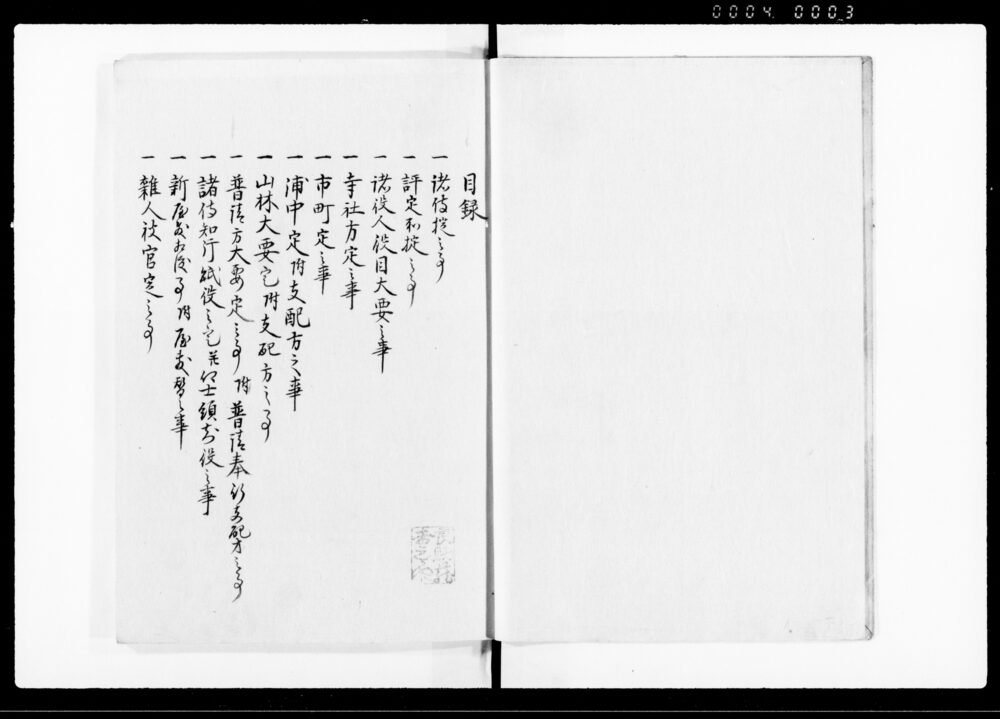 0004 0003
目録
一 諸侍掟之事
一 評定和掟之事
一 諸役人役目大要之事
一 寺社方定之事
一 市町定之事
一 浦中定附支配方之事
一 山林大要定附支配方之事
一 普請方大要定之事附普請奉行支配方之事
一 諸侍知行祇役之定并
一 新屋敷 事附屋敷替之事
一 雑人被官定之事